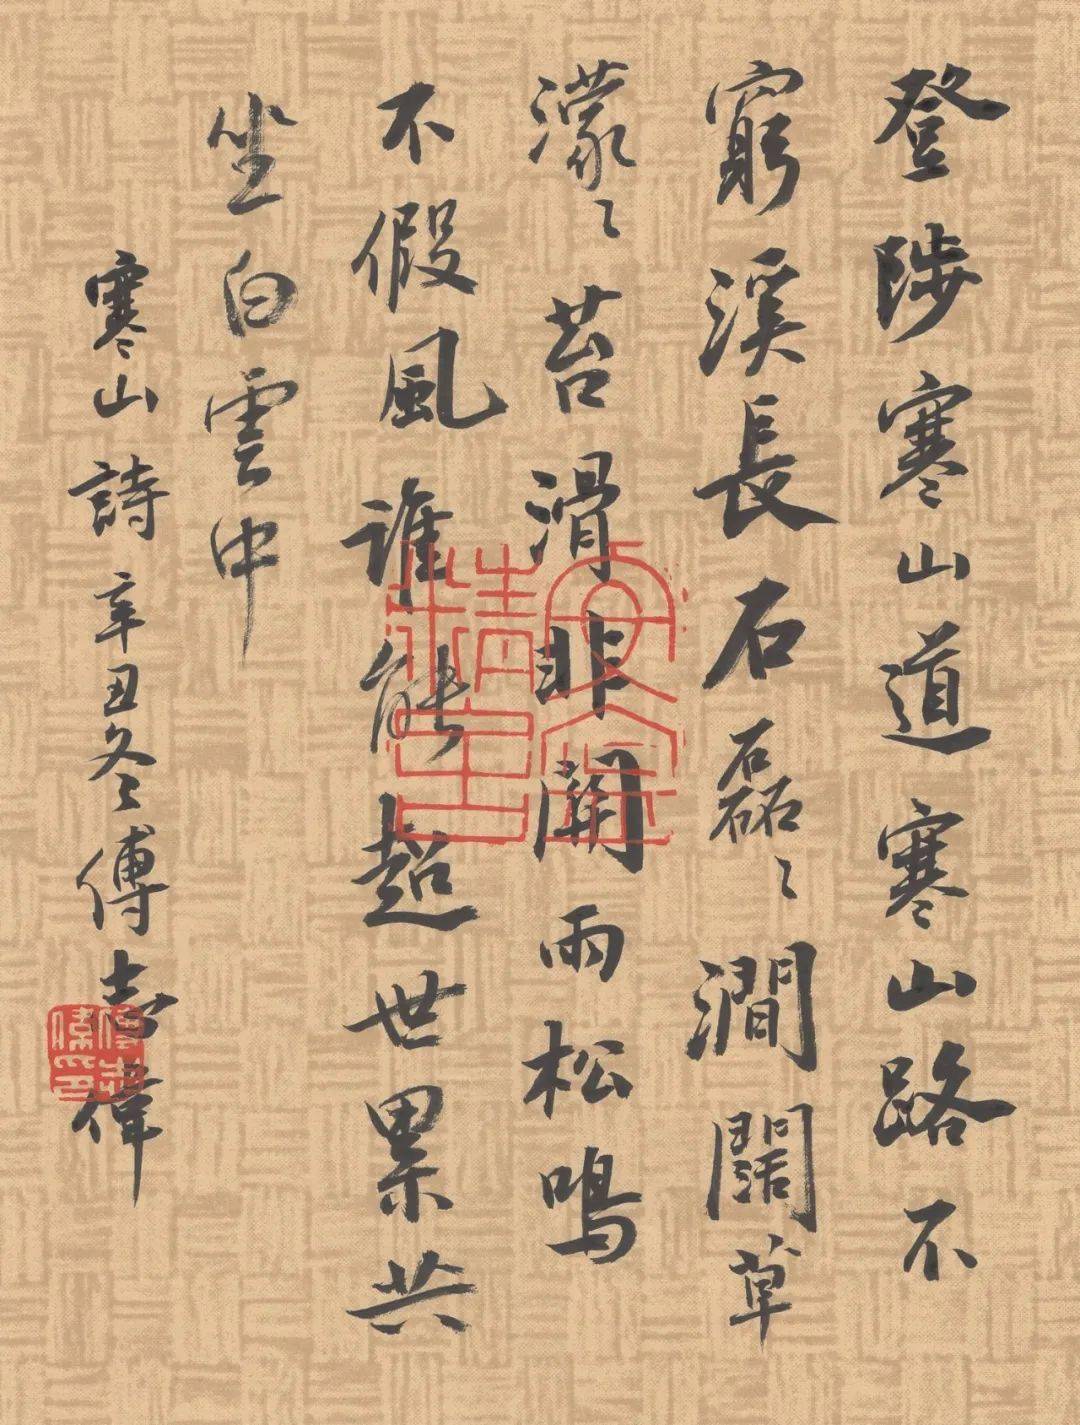 登陟寒山道寒山路不
窮溪長石磊〻澗闊草
濛〻苔滑非關雨松鳴
不假風誰能超世累共
坐白雲中
寒山詩 辛丑冬傅志偉
傅志偉印